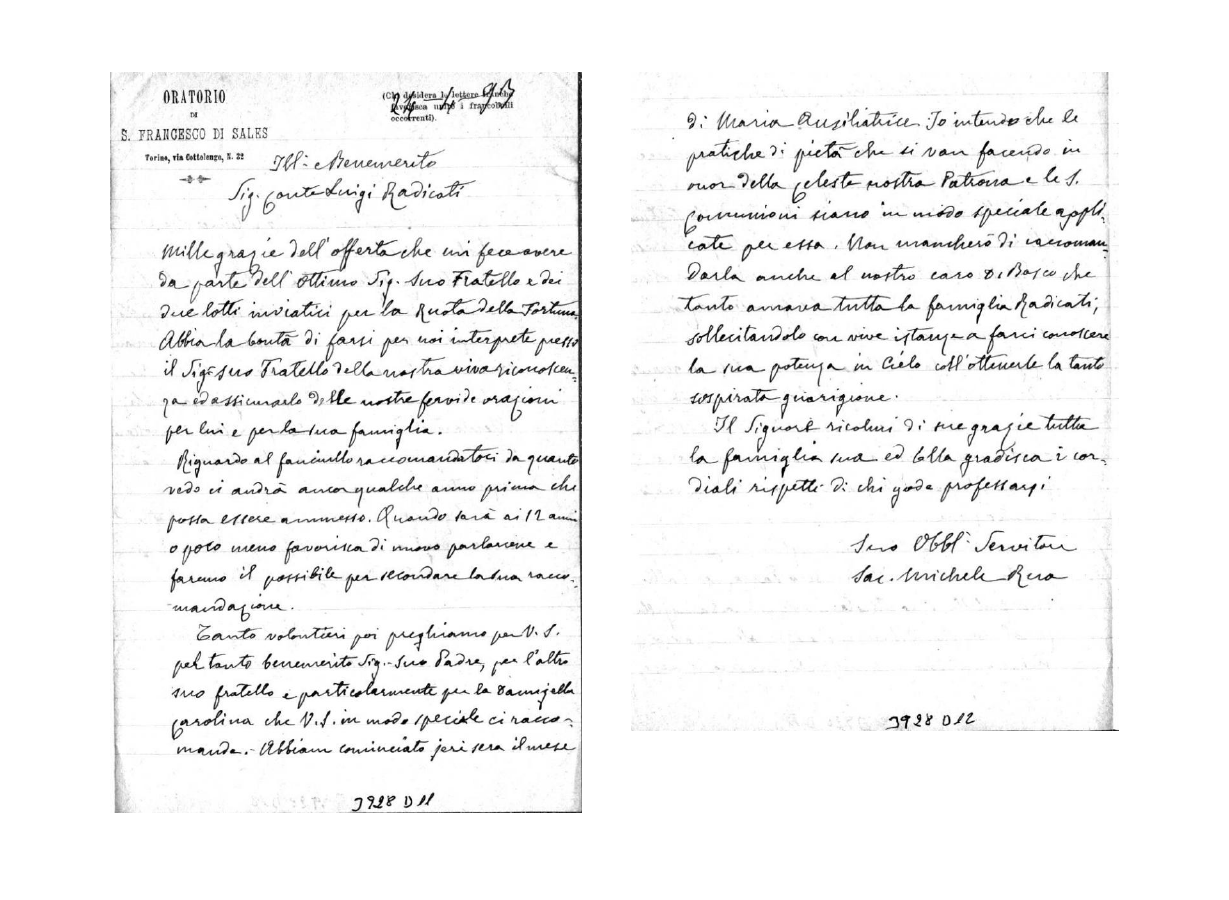 ORATORIO
DI
S. FRANCESCO DI SALES
Torino, via Cottolengo, N. 32
(Chi desidera le lettere franche
favorisca unire i francobolli
occorrenti).
24 93
Ill.: e Benemerito
Sig. Conte Luigi Radicati
Mille grazie dell'offerta che mi fece avere
da parte dell'ottimo Sig. Suo Fratello e dei
due lotti inviatici per la Ruota della Fortuna.
Abbia la bontà di farsi per noi interprete presso
il Sig. suo Fratello della nostra viva riconoscen-
za ed assicurarlo delle nostre fervide orazioni
per lui e per la sua famiglia.
Riguardo al fanciullo raccomandatoci da quanto
vedo ci andrà ancor qualche anno prima che
possa essere ammesso. Quando sarà ai 12 anni
o poco meno favorisca di nuovo parlarcene e
faremo il possibile per secondare la sua racco-
mandazione.
Tanto volontieri poi preghiamo per V. S.
pel tanto benemerito Sig. Suo Padre, per l'altro
suo fratello e particolarmente per la Damigella
Carolina che V. S. in modo speciale ci racco-
manda. Abbiam cominciato jeri sera il mese
3928 D 11
di Maria Ausiliatrice. Io intendo che le
pratiche di pietà che si van facendo in
onor della Celeste nostra Patrona e le S.
Comunioni siano in modo speciale appli-
cate per essa. Non mancherò di raccoman-
darla anche al nostro caro D. Bosco che
tanto amava tutta la famiglia Radicati,
sollecitandolo con vive istanze a farci conoscere
la sua potenza in Cielo coll'ottenerle la tanto
sospirata guarigione.
Il Signore ricolmi di sue grazie tutta
la famiglia sua ed Ella gradisca i cor-
diali rispetti di chi gode professarsi
Suo Obbl. Servitore
Sac. Michele Rua
3928 D 12